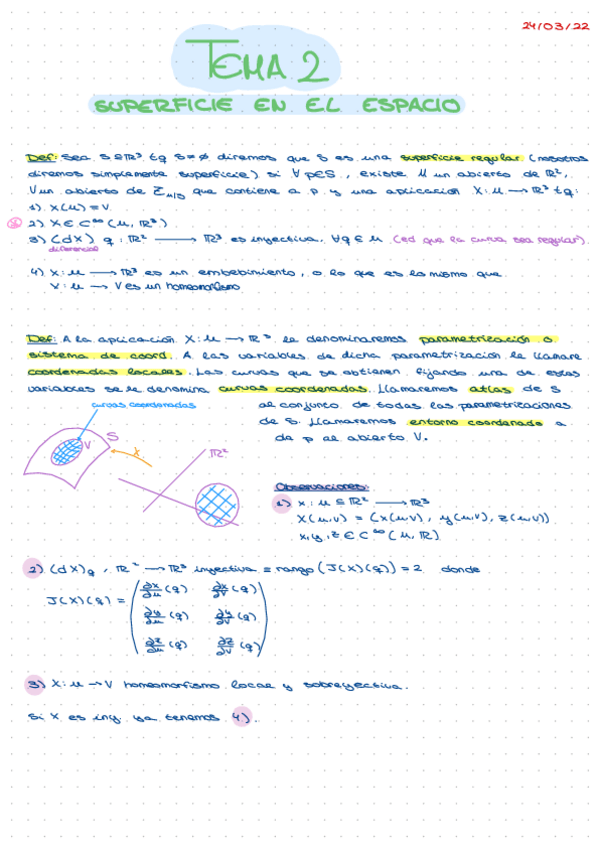 24/03/22
TEMA 2
SUPERFICIE EN EL ESPACIO
Def: Sea S⊆ℝ³ tq S≠∅ diremos que S es una superficie regular (nosotros
diremos simplemente superficie) si ∀p∈S, existe U un abierto de ℝ²,
V un abierto de que contiene a p y una aplicación X: U → ℝ³ tq:
1) X(U) = V
2) X ∈ C^∞(U, ℝ³)
3) (dX)q : ℝ² → ℝ³ es inyectiva, ∀q∈U (ed que la curva sea regular)
diferencial
4) X: U → ℝ³ es un embebimiento, o lo que es lo mismo que
X: U → V es un homeomorfismo
Def: A la aplicación X: U → ℝ³ le denominaremos parametrización o
sistema de coord. A las variables de dicha parametrización le llamare
coordenadas locales. Las curvas que se obtienen fijando una de estas
variables se le denomina curvas coordenadas. Llamaremos atlas de S
al conjunto de todas las parametrizaciones
de S. Llamaremos entorno coordenado a
de p al abierto V.
curvas coordenadas
S
V
X
ℝ²
Observaciones:
1) X: U ⊆ ℝ² → ℝ³
X(u,v) = (x(u,v), y(u,v), z(u,v))
x,y,z ∈ C^∞(U, ℝ)
2) (dX)q, ℝ² → ℝ³ inyectiva ≡ rango (J(X)(q)) = 2 donde
J(X)(q) = ( ∂x/∂u (q) ∂x/∂v (q)
∂y/∂u (q) ∂y/∂v (q)
∂z/∂u (q) ∂z/∂v (q) )
3) X: U → V homeomorfismo local y sobreyectiva.
Si X es iny. ya tenemos 4).